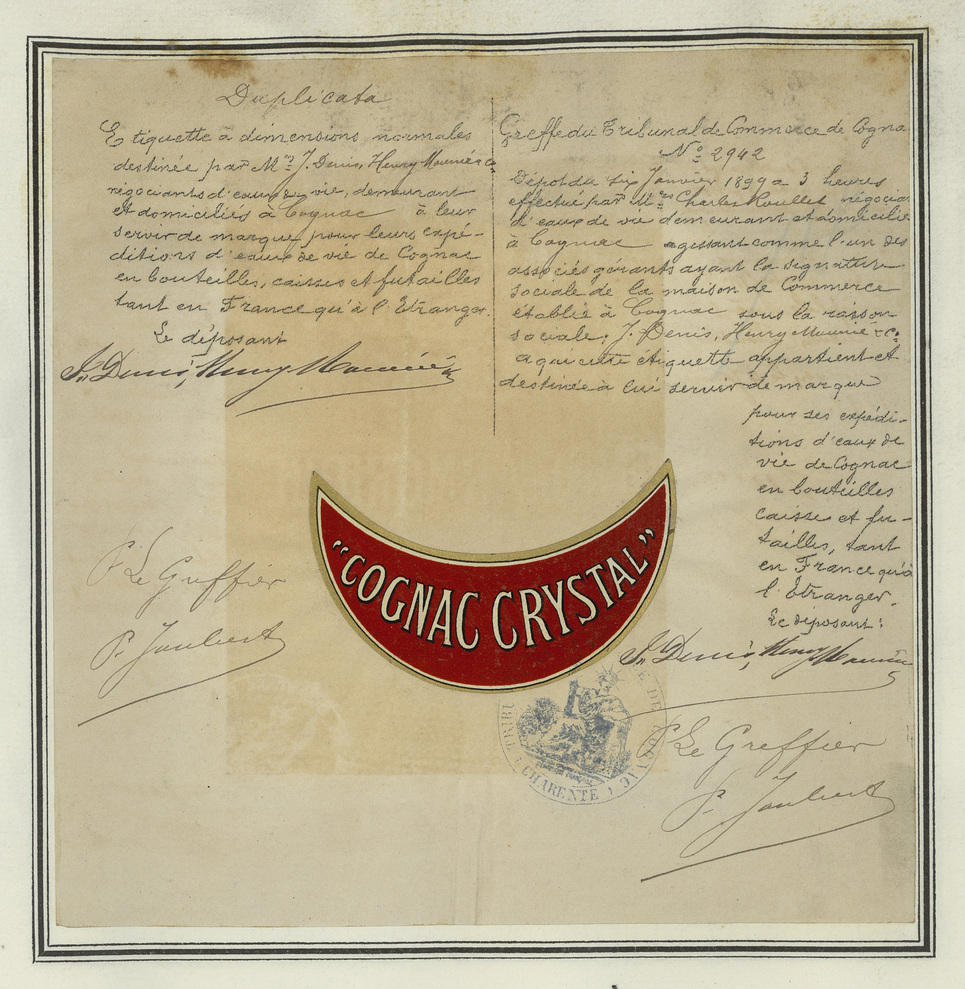 Duplicata
Etiquette à dimensions normales
destinée par Mrs J. Denis, Henry Mounié & Co
négociants d'eaux de vie, demeurant
et domiciliés à Cognac à leur
servir de marque pour leurs expé-
ditions d'eaux de vie de Cognac
en bouteilles, caisses et futailles
tant en France qu'à l'Etranger.
Le déposant
Jn. Denis, Henry Mounié & Co
P. Le Greffier
P. Joubert
Greffe du Tribunal de Commerce de Cogna
No 2942
Dépôt du six Janvier 1899 à 3 heures
effectué par Mr Charles Roullet négocia
d'eaux de vie demeurant et domicilié
à Cognac agissant comme l'un des
associés gérants ayant la signature
sociale de la maison de Commerce
établie à Cognac sous la raison
sociale: J. Denis, Henry Mounié & Co.
a qui cette étiquette appartient et
destinée à lui servir de marque
pour ses expédi-
tions d'eaux de
vie de Cognac
en bouteilles
caisse et fu-
tailles, tant
en France qu'à
l'Etranger.
Le déposant:
Jn. Denis, Henry Mounié
"COGNAC CRYSTAL"
TRIBU DE COGNAC
CHARENTE
P. Le Greffier
P. Joubert